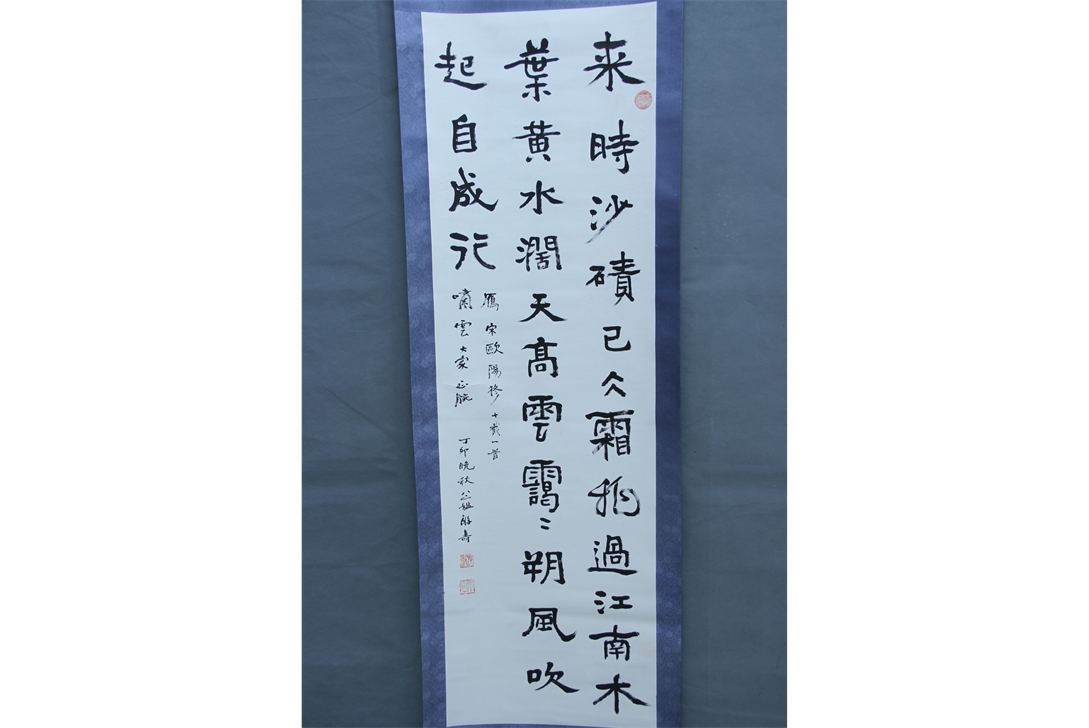 来時沙磧已仌霜飛過江南木
葉黃水濶天高雲靄〻朔風吹
起自成行
鴈 宋歐陽修十歲一首
嘯雲大家正腕 丁卯晚秋 游壽